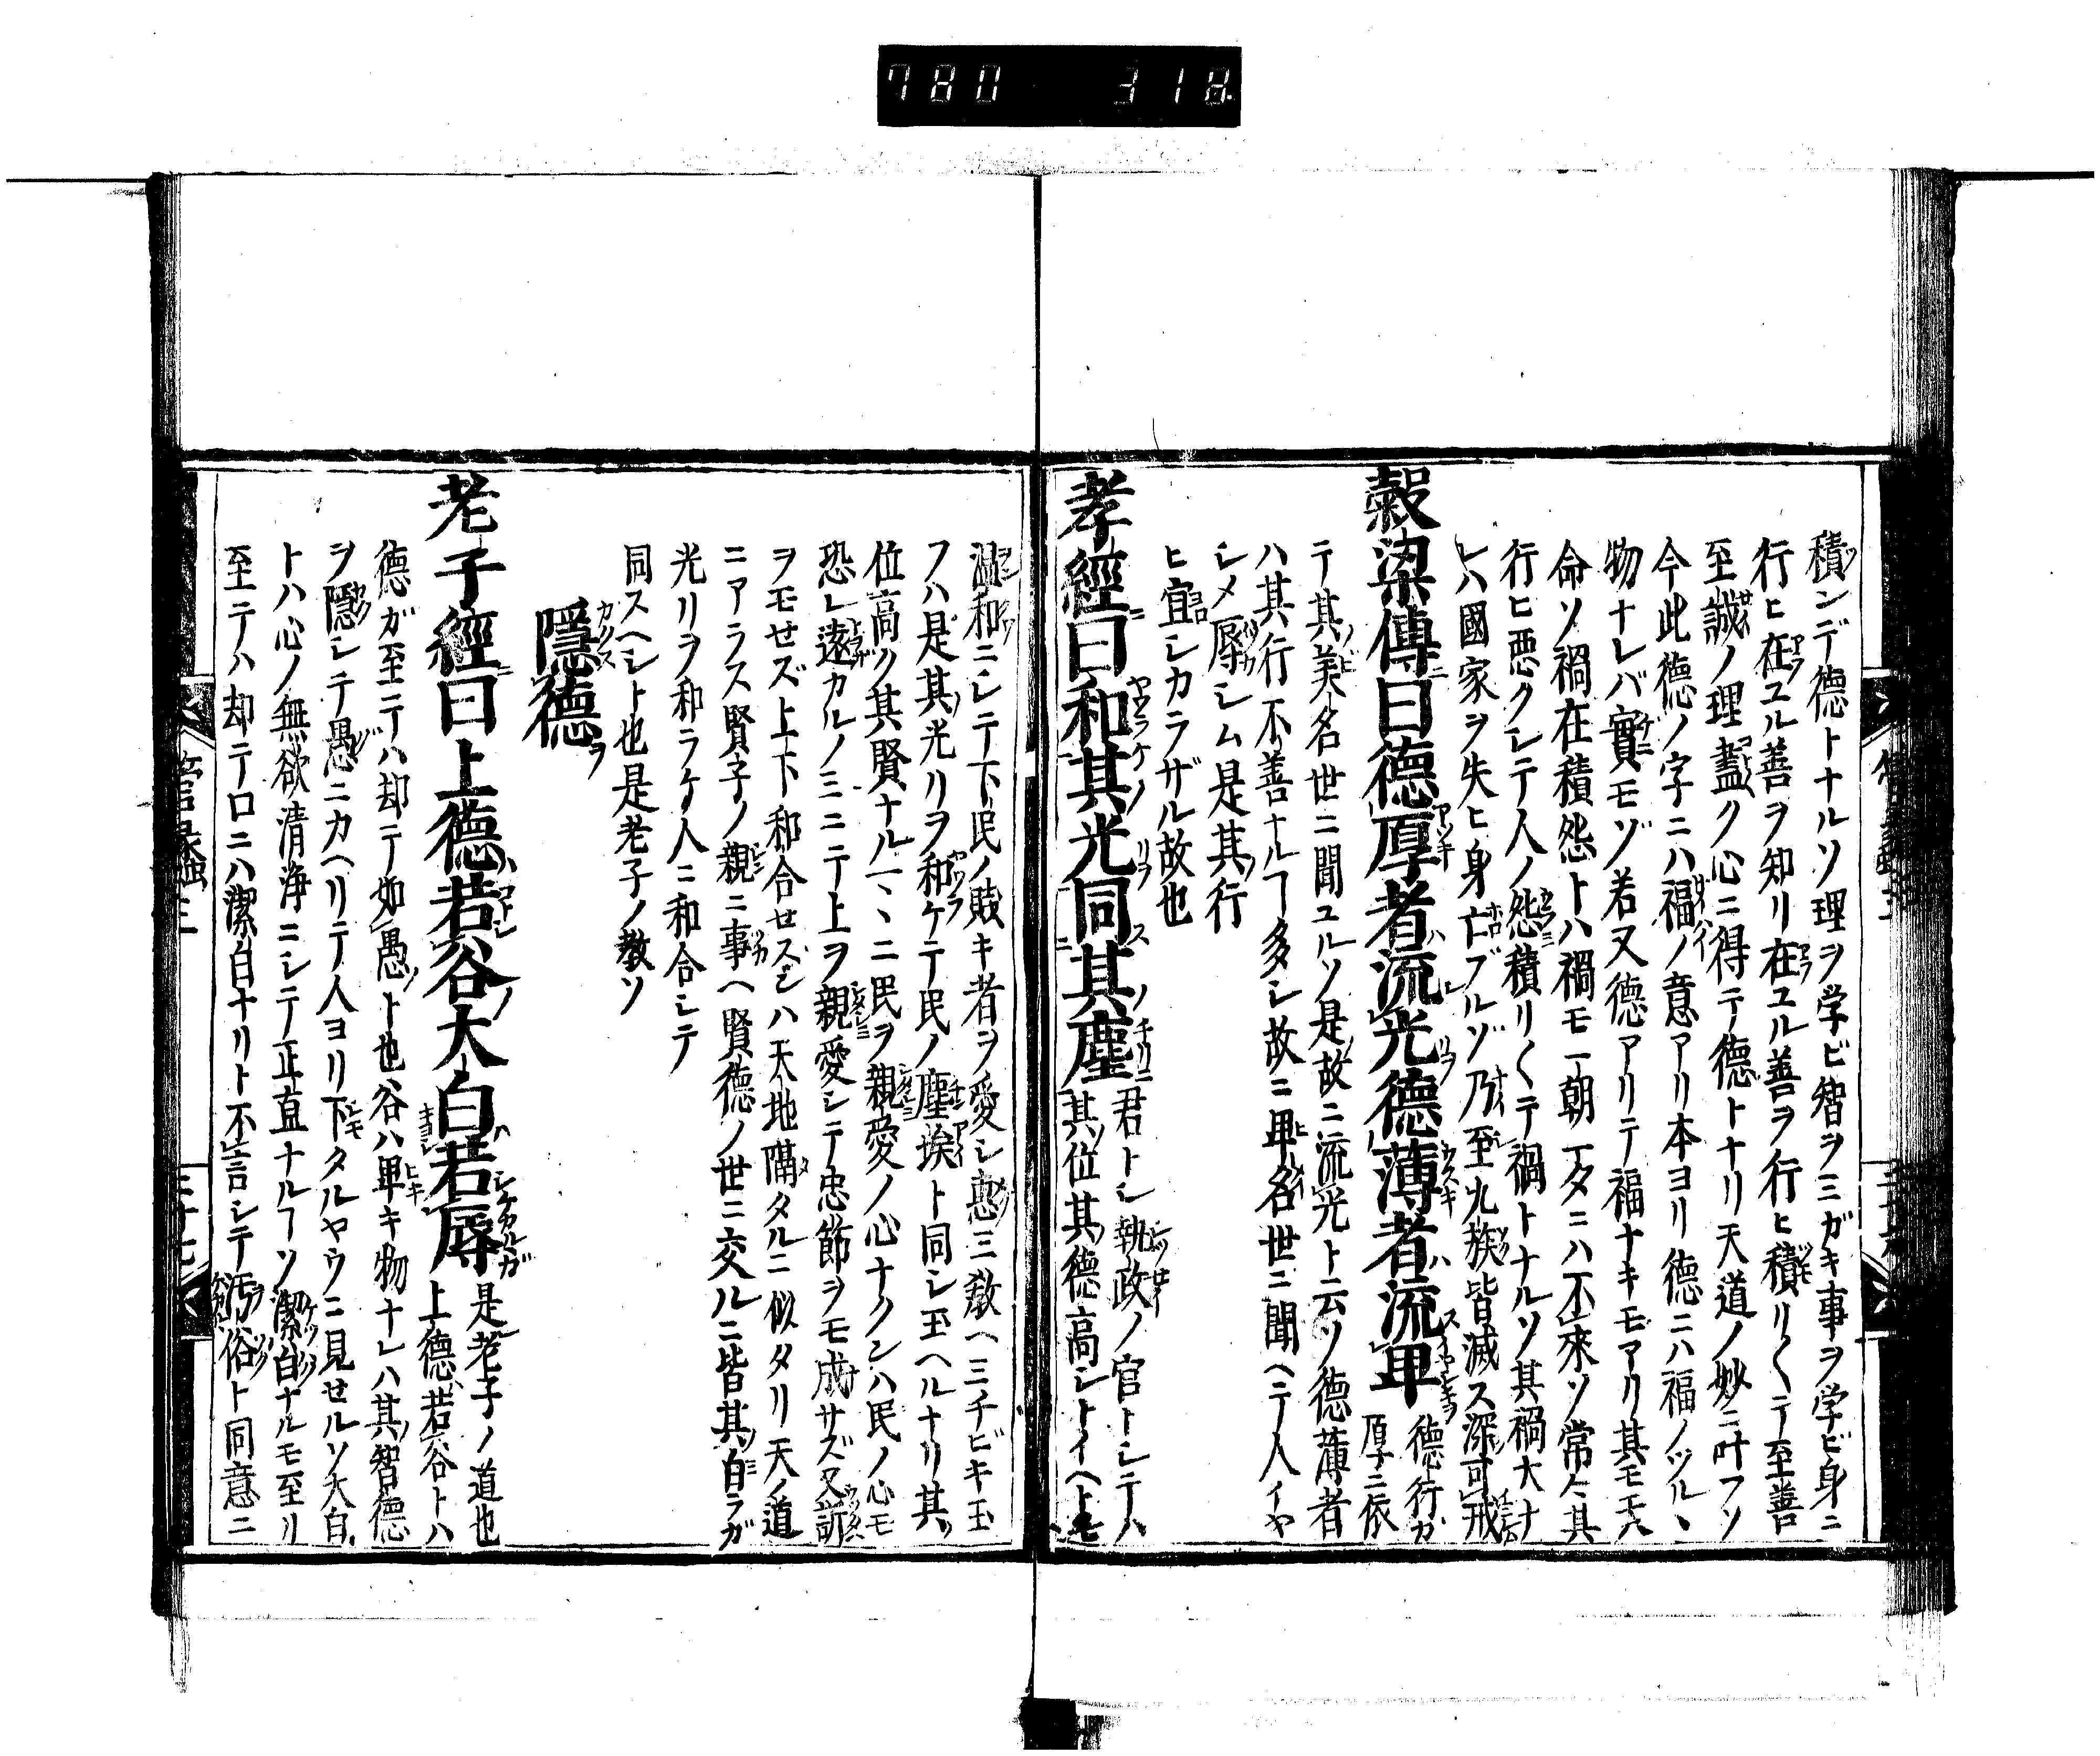 780 318
積ンデ德トナルソ理ヲ学ビ智ヲミガキ事ヲ学ビ身ニ
行ヒ在ユル善ヲ知リ在ユル善ヲ行ヒ積リ〱テ至善
至誠ノ理盡ク心ニ得テ德トナリ天道ノ妙ニ叶フソ
今此德ノ字ニハ福ノ意アリ本ヨリ德ニハ福ノツルヽ
物ナレバ實モゾ若又德アリテ福ナキモアリ其モ天
命ソ禍在積怨トハ禍モ一朝一タニハ不來ソ常々其
行ヒ悪クシテ人ノ怨積リ〱テ禍トナルソ其禍大ナ
レハ國家ヲ失ヒ身亡ブルゾ乃至九族皆滅ス深可戒
穀梁傳曰德厚者流光德薄者流卑
德行ガ
厚ニ依
テ其美名世ニ聞ユルソ是故ニ流光ト云ソ德薄者
ハ其行不善ナルヿ多シ故ニ卑名世ニ聞ヘテ人イヤ
シメ辱シム是其行
ヒ宜シカラザル故也
孝經曰和其光同其塵
君トシ執政ノ官トシテハ
其位其德高シトイヘトモ
温和ニシテ下民ノ賎キ者ヲ愛シ惠ミ教ヘミチビキ玉
フハ是其光リヲ和ケテ民ノ塵埃ト同シ玉ヘルナリ其
位高ク其賢ナルヿヽニ民ヲ親愛ノ心ナクンハ民ノ心モ
恐レ遠カルノミニテ上ヲ親愛シテ忠節ヲモ成サズ又訴
ヲモせズ上下和合せズンハ天地隔タルニ似タリ天ノ道
ニアラス賢子ノ親ニ事ヘ賢德ノ世ニ交ルニ皆其自ラガ
光リヲ和ラケ人ニ和合シテ
同スヘシト也是老子ノ教ソ
隱德
老子經曰上德若谷大白若辱
是老子ノ道也
上德若谷トハ
德ガ至ニテハ却テ如愚ト也谷ハ卑キ物ナレハ其智德
ヲ隱シテ愚ニカヘリテ人ヨリ下タルヤウニ見せルソ大白
トハ心ノ無欲清浄ニシテ正直ナルヿソ潔白ナルモ至リ
至テハ却テ口ニハ潔白ナリト不言シテ汚俗ト同意ニ